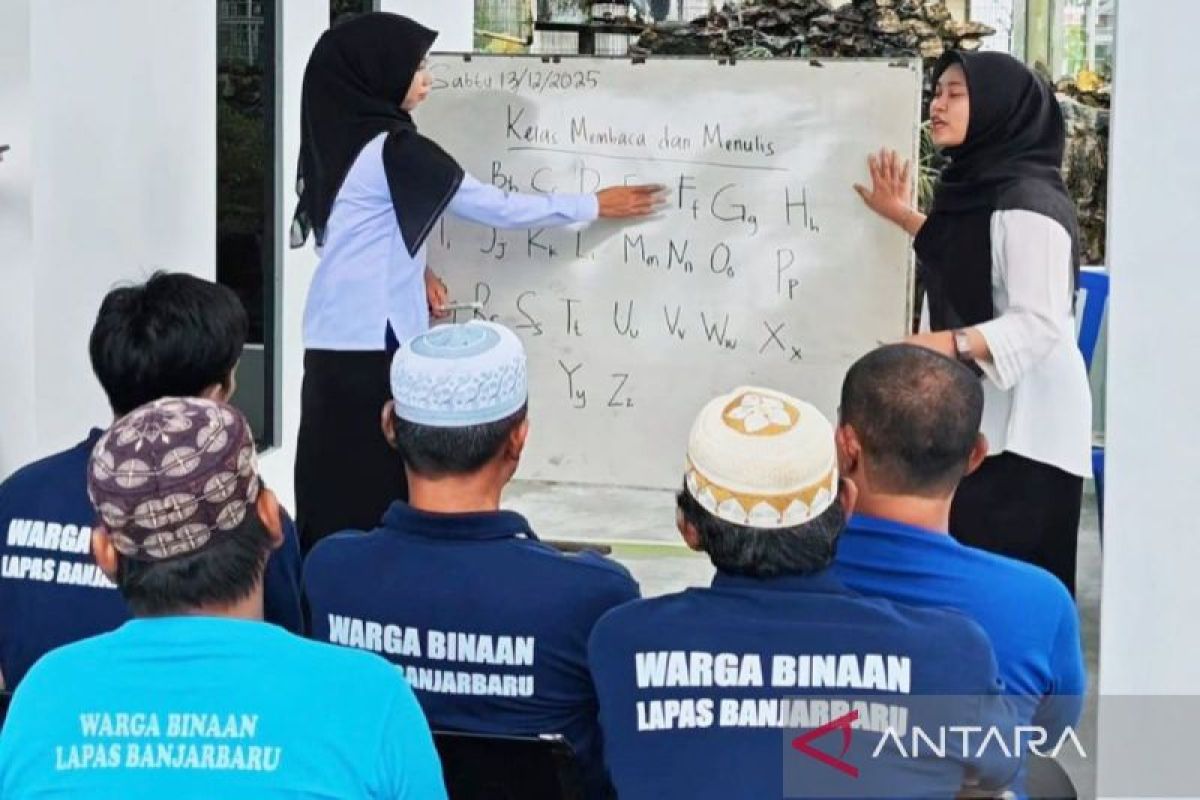 Sabtu 13/12/2025
Kelas Membaca dan Menulis
Bb Cc D Ff Gg Hh
Jj Kk L Mm Nn Oo Pp
Ss Tt Uu Vv Ww Xx
Yy Zz
WARGA
LAPAS BANJARBA
WARGA BINAAN
BANJARBARU
WARGA BINAAN
LAPAS BANJARBARU
WARGA BINAAN
LAPAS BANJARBARU
ANTARA